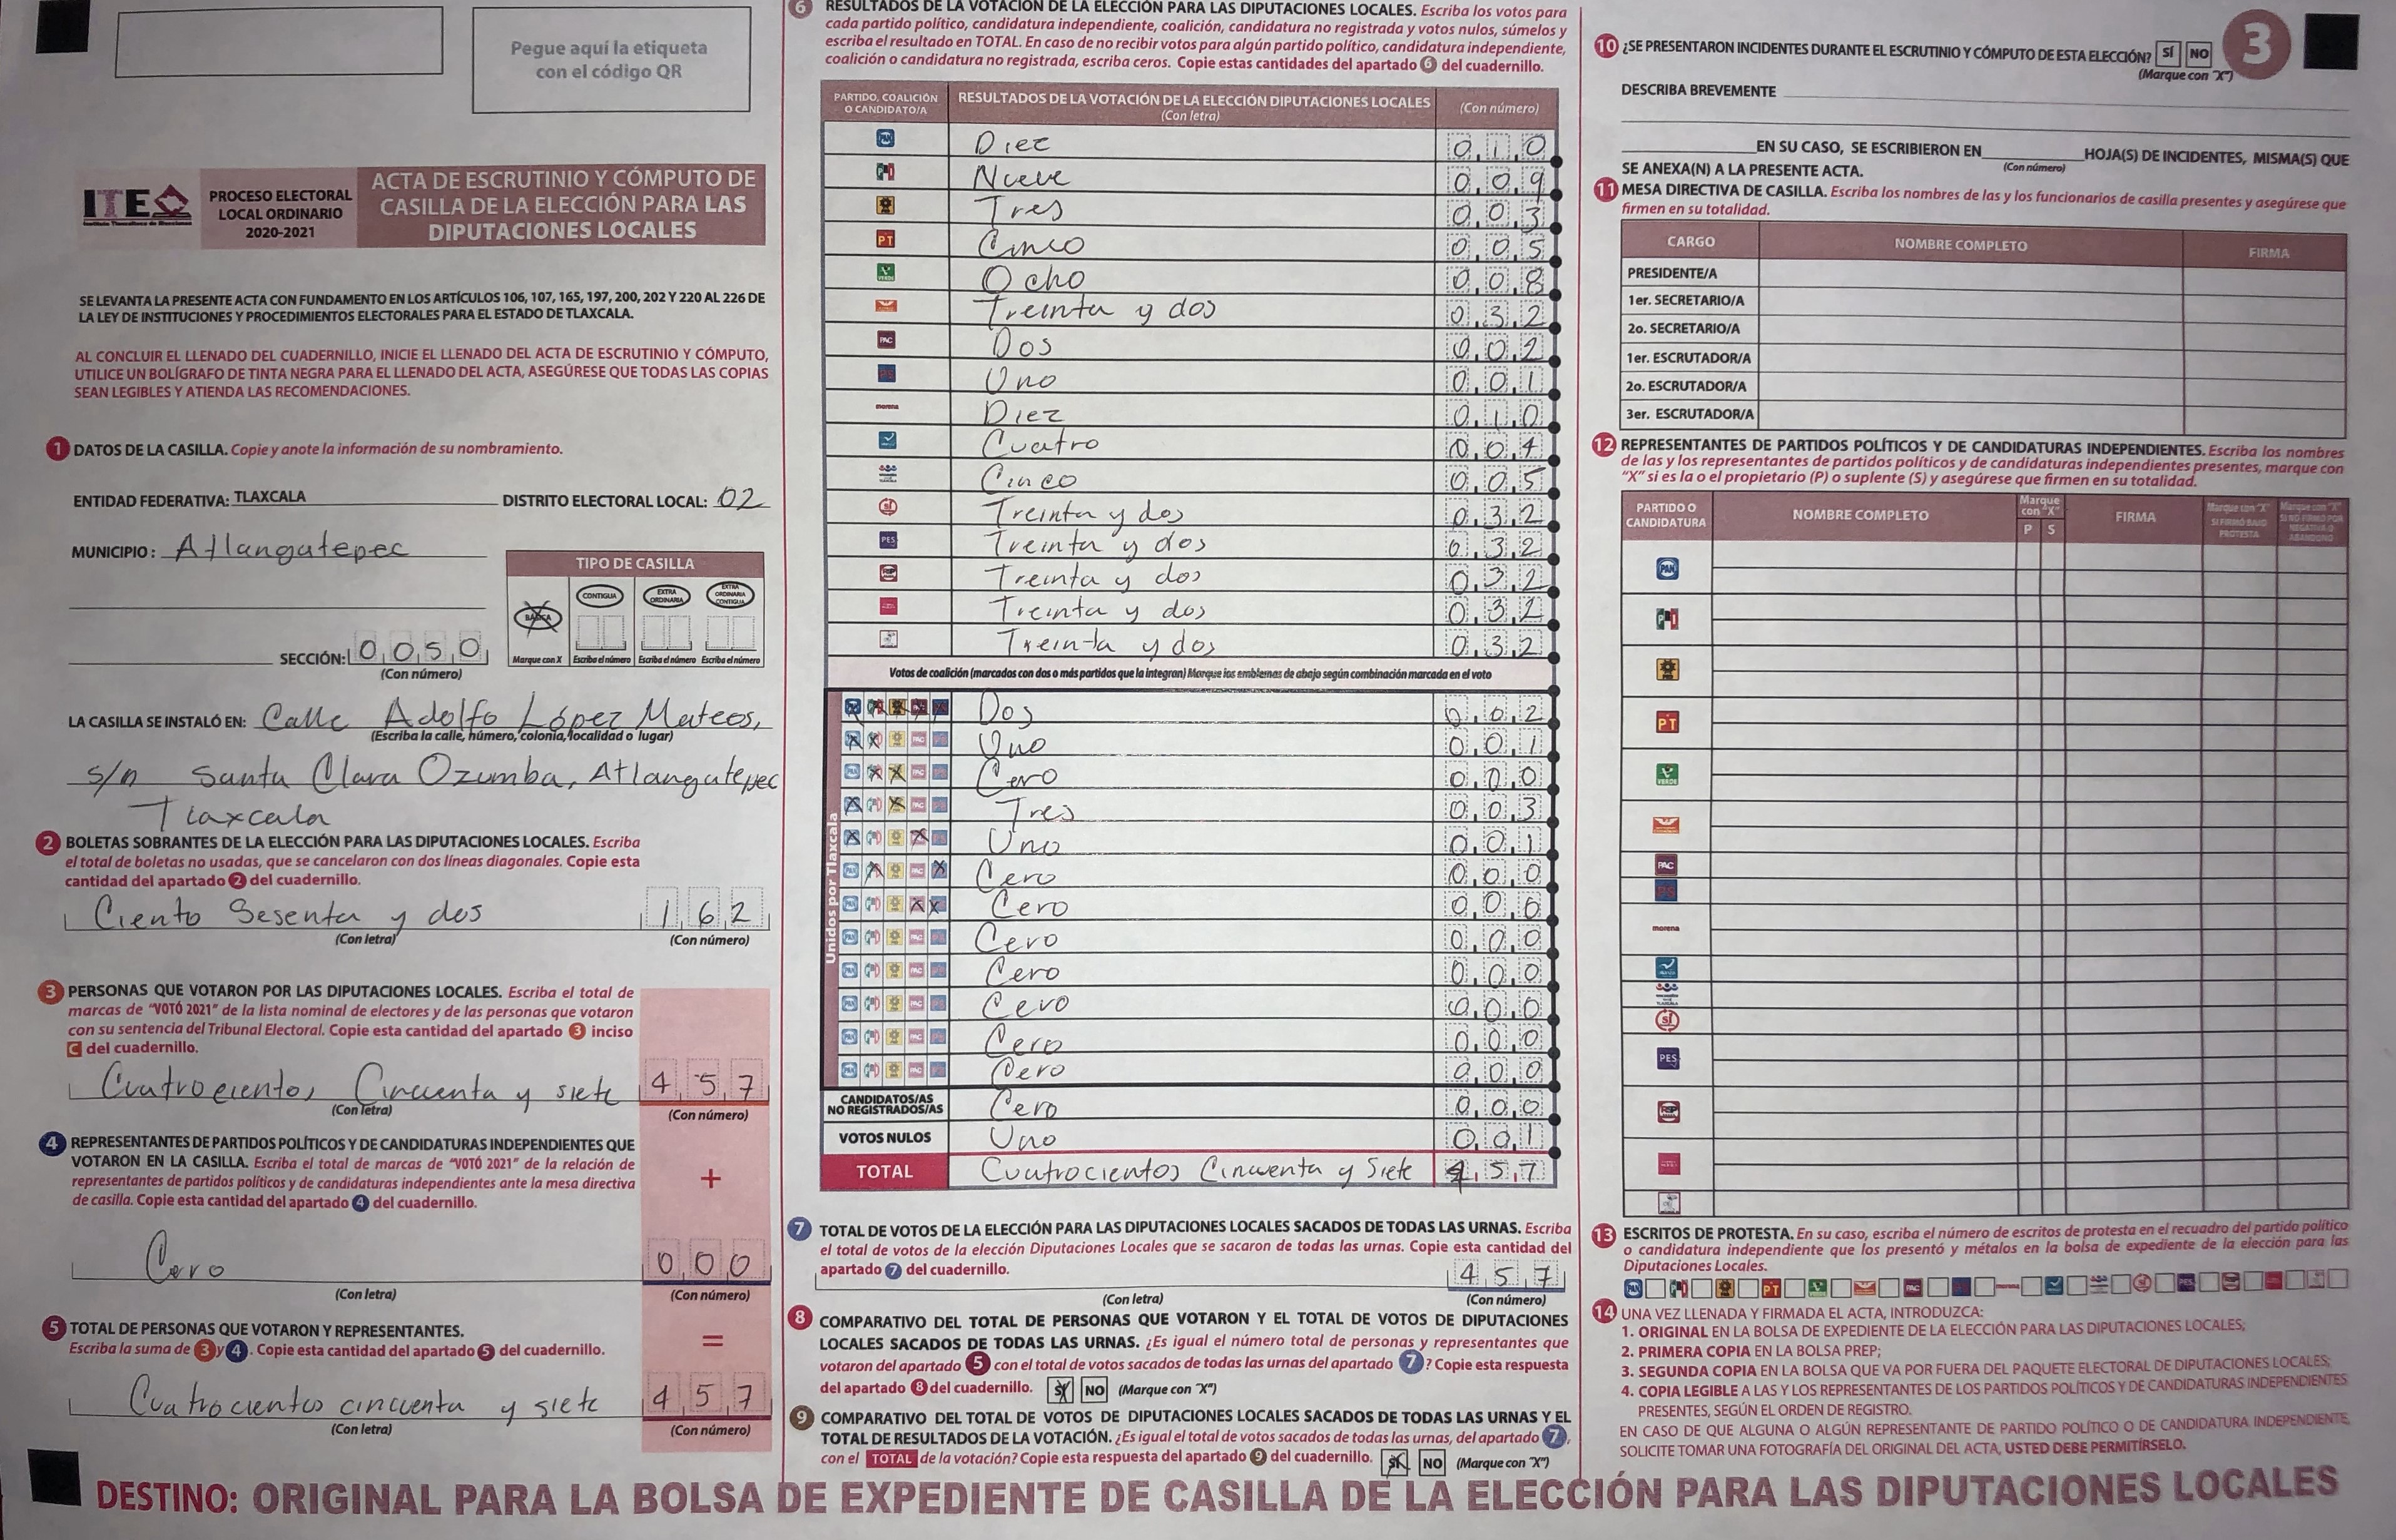 Pegue aquí la etiqueta
con el código QR
ITE
PROCESO ELECTORAL
LOCAL ORDINARIO
2020-2021
ACTA DE ESCRUTINIO Y CÓMPUTO DE
CASILLA DE LA ELECCIÓN PARA LAS
DIPUTACIONES LOCALES
SE LEVANTA LA PRESENTE ACTA CON FUNDAMENTO EN LOS ARTÍCULOS 106, 107, 165, 197, 200, 202 Y 220 AL 226 DE
LA LEY DE INSTITUCIONES Y PROCEDIMIENTOS ELECTORALES PARA EL ESTADO DE TLAXCALA.
AL CONCLUIR EL LLENADO DEL CUADERNILLO, INICIE EL LLENADO DEL ACTA DE ESCRUTINIO Y CÓMPUTO,
UTILICE UN BOLÍGRAFO DE TINTA NEGRA PARA EL LLENADO DEL ACTA, ASEGÚRESE QUE TODAS LAS COPIAS
SEAN LEGIBLES Y ATIENDA LAS RECOMENDACIONES.
1 DATOS DE LA CASILLA. Copie y anote la información de su nombramiento.
ENTIDAD FEDERATIVA: TLAXCALA DISTRITO ELECTORAL LOCAL: 02
MUNICIPIO: Atlangatepec
TIPO DE CASILLA
BÁSICA CONTIGUA EXTRA ORDINARIA EXTRA ORDINARIA CONTIGUA
Marque con X Escriba el número Escriba el número Escriba el número
SECCIÓN: 0050
(Con número)
LA CASILLA SE INSTALÓ EN: Calle Adolfo López Mateos,
(Escriba la calle, número, colonia, localidad o lugar)
s/n Santa Clara Ozumba, Atlangatepec
Tlaxcala
2 BOLETAS SOBRANTES DE LA ELECCIÓN PARA LAS DIPUTACIONES LOCALES. Escriba
el total de boletas no usadas, que se cancelaron con dos líneas diagonales. Copie esta
cantidad del apartado 2 del cuadernillo.
Ciento Sesenta y dos 162
(Con letra) (Con número)
3 PERSONAS QUE VOTARON POR LAS DIPUTACIONES LOCALES. Escriba el total de
marcas de "VOTÓ 2021" de la lista nominal de electores y de las personas que votaron
con su sentencia del Tribunal Electoral. Copie esta cantidad del apartado 3 inciso
C del cuadernillo.
Cuatrocientos Cincuenta y siete 457
(Con letra) (Con número)
4 REPRESENTANTES DE PARTIDOS POLÍTICOS Y DE CANDIDATURAS INDEPENDIENTES QUE
VOTARON EN LA CASILLA. Escriba el total de marcas de "VOTÓ 2021" de la relación de
representantes de partidos políticos y de candidaturas independientes ante la mesa directiva
de casilla. Copie esta cantidad del apartado 4 del cuadernillo.
+
Cero 000
(Con letra) (Con número)
5 TOTAL DE PERSONAS QUE VOTARON Y REPRESENTANTES.
Escriba la suma de 3 y 4. Copie esta cantidad del apartado 5 del cuadernillo.
=
Cuatrocientos cincuenta y siete 457
(Con letra) (Con número)
6 RESULTADOS DE LA VOTACIÓN DE LA ELECCIÓN PARA LAS DIPUTACIONES LOCALES. Escriba los votos para
cada partido político, candidatura independiente, coalición, candidatura no registrada y votos nulos, súmelos y
escriba el resultado en TOTAL. En caso de no recibir votos para algún partido político, candidatura independiente,
coalición o candidatura no registrada, escriba ceros. Copie estas cantidades del apartado 6 del cuadernillo.
PARTIDO, COALICIÓN O CANDIDATO/A RESULTADOS DE LA VOTACIÓN DE LA ELECCIÓN DIPUTACIONES LOCALES (Con letra) (Con número)
PAN Diez 010
PRI Nueve 009
Tres 003
PT Cinco 005
VERDE Ocho 008
Treinta y dos 032
PAC Dos 002
PS Uno 001
morena Diez 010
Cuatro 004
Cinco 005
sí Treinta y dos 032
PES Treinta y dos 032
RSP Treinta y dos 032
Treinta y dos 032
Treinta y dos 032
Votos de coalición (marcados con dos o más partidos que la integran) Marque los emblemas de abajo según combinación marcada en el voto
Unidos por Tlaxcala
Dos 002
Uno 001
Cero 000
Tres 003
Uno 001
Cero 000
Cero 000
Cero 000
Cero 000
Cero 000
Cero 000
Cero 000
CANDIDATOS/AS NO REGISTRADOS/AS Cero 000
VOTOS NULOS Uno 001
TOTAL Cuatrocientos Cincuenta y Siete 457
7 TOTAL DE VOTOS DE LA ELECCIÓN PARA LAS DIPUTACIONES LOCALES SACADOS DE TODAS LAS URNAS. Escriba
el total de votos de la elección Diputaciones Locales que se sacaron de todas las urnas. Copie esta cantidad del
apartado 7 del cuadernillo. 457
(Con letra) (Con número)
8 COMPARATIVO DEL TOTAL DE PERSONAS QUE VOTARON Y EL TOTAL DE VOTOS DE DIPUTACIONES
LOCALES SACADOS DE TODAS LAS URNAS. ¿Es igual el número total de personas y representantes que
votaron del apartado 5 con el total de votos sacados de todas las urnas del apartado 7? Copie esta respuesta
del apartado 8 del cuadernillo. SÍ NO (Marque con "X")
9 COMPARATIVO DEL TOTAL DE VOTOS DE DIPUTACIONES LOCALES SACADOS DE TODAS LAS URNAS Y EL
TOTAL DE RESULTADOS DE LA VOTACIÓN. ¿Es igual el total de votos sacados de todas las urnas, del apartado 7,
con el TOTAL de la votación? Copie esta respuesta del apartado 9 del cuadernillo. SÍ NO (Marque con "X")
10 ¿SE PRESENTARON INCIDENTES DURANTE EL ESCRUTINIO Y CÓMPUTO DE ESTA ELECCIÓN? SÍ NO
(Marque con "X")
3
DESCRIBA BREVEMENTE
EN SU CASO, SE ESCRIBIERON EN HOJA(S) DE INCIDENTES, MISMA(S) QUE
SE ANEXA(N) A LA PRESENTE ACTA. (Con número)
11 MESA DIRECTIVA DE CASILLA. Escriba los nombres de las y los funcionarios de casilla presentes y asegúrese que
firmen en su totalidad.
CARGO NOMBRE COMPLETO FIRMA
PRESIDENTE/A
1er. SECRETARIO/A
2o. SECRETARIO/A
1er. ESCRUTADOR/A
2o. ESCRUTADOR/A
3er. ESCRUTADOR/A
12 REPRESENTANTES DE PARTIDOS POLÍTICOS Y DE CANDIDATURAS INDEPENDIENTES. Escriba los nombres
de las y los representantes de partidos políticos y de candidaturas independientes presentes, marque con
"X" si es la o el propietario (P) o suplente (S) y asegúrese que firmen en su totalidad.
PARTIDO O CANDIDATURA NOMBRE COMPLETO Marque con "X" P S FIRMA Marque con "X" SI FIRMÓ BAJO PROTESTA Marque con "X" SI NO FIRMÓ POR NEGATIVA O ABANDONO
PAN
PRI
PT
VERDE
PAC
PS
morena
sí
PES
RSP
13 ESCRITOS DE PROTESTA. En su caso, escriba el número de escritos de protesta en el recuadro del partido político
o candidatura independiente que los presentó y métalos en la bolsa de expediente de la elección para las
Diputaciones Locales.
14 UNA VEZ LLENADA Y FIRMADA EL ACTA, INTRODUZCA:
1. ORIGINAL EN LA BOLSA DE EXPEDIENTE DE LA ELECCIÓN PARA LAS DIPUTACIONES LOCALES;
2. PRIMERA COPIA EN LA BOLSA PREP;
3. SEGUNDA COPIA EN LA BOLSA QUE VA POR FUERA DEL PAQUETE ELECTORAL DE DIPUTACIONES LOCALES;
4. COPIA LEGIBLE A LAS Y LOS REPRESENTANTES DE LOS PARTIDOS POLÍTICOS Y DE CANDIDATURAS INDEPENDIENTES
PRESENTES, SEGÚN EL ORDEN DE REGISTRO.
EN CASO DE QUE ALGUNA O ALGÚN REPRESENTANTE DE PARTIDO POLÍTICO O DE CANDIDATURA INDEPENDIENTE,
SOLICITE TOMAR UNA FOTOGRAFÍA DEL ORIGINAL DEL ACTA, USTED DEBE PERMITÍRSELO.
DESTINO: ORIGINAL PARA LA BOLSA DE EXPEDIENTE DE CASILLA DE LA ELECCIÓN PARA LAS DIPUTACIONES LOCALES